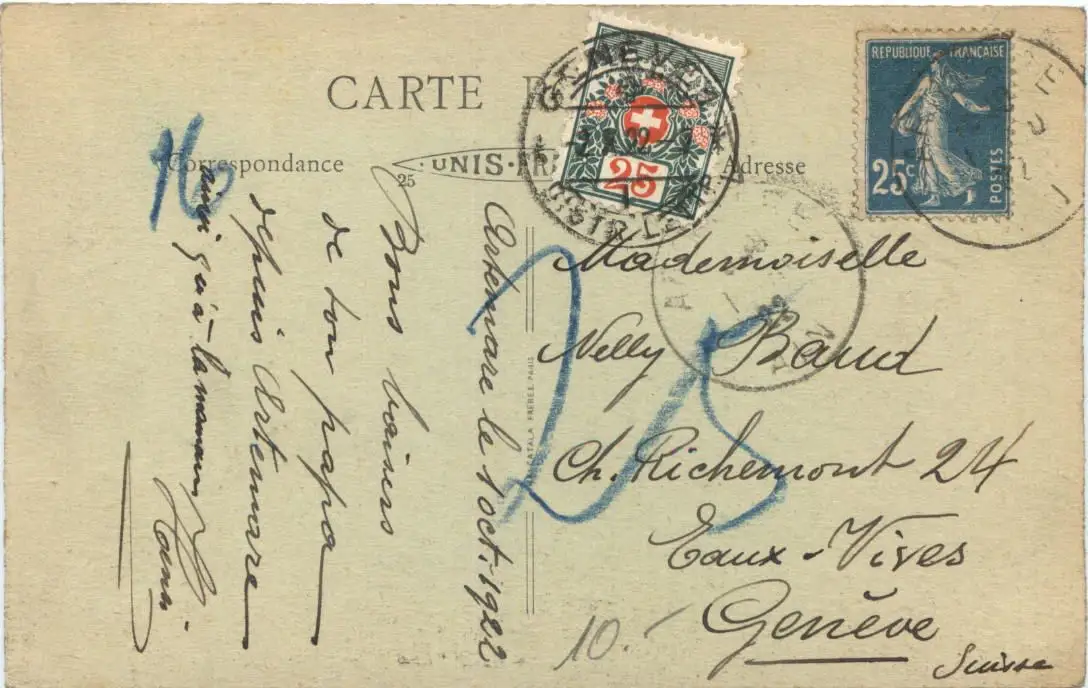 CARTE
Correspondance
25
UNIS-FR
Adresse
25
REPUBLIQUE FRANÇAISE
25c
POSTES
16
Artemare le 1 oct. 1922
Bons baisers
de ton papa
depuis Artemare
ainsi qu'à la maman
25
Mademoiselle
Nelly Baud
Ch. Richemont 24
Eaux-Vives
Genève
Suisse
10.-
CATALA FRERES PARIS